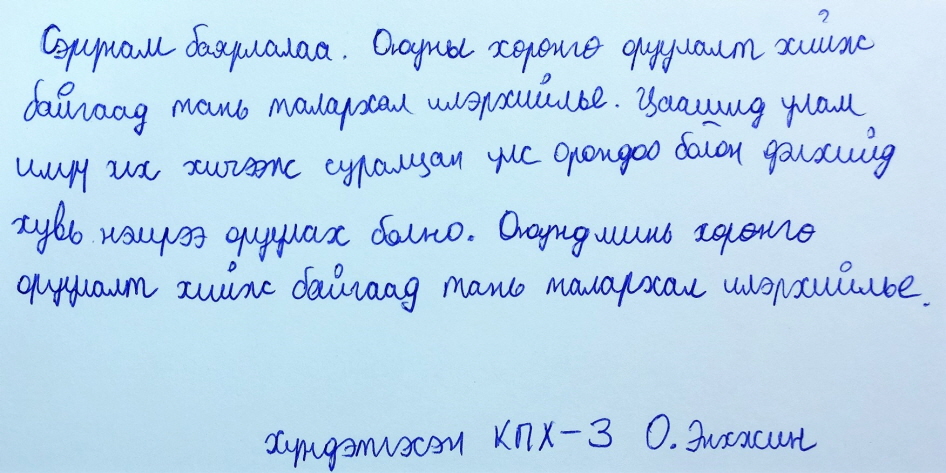 Сэрүүнам баярлалаа. Оюуны хөрөнгө оруулалт хийж
байгаад тань талархал илэрхийлье. Цаашид улам
илүү их хичээж суралцан улс орондоо болон дэлхийд
хувь нэмрээ оруулах болно. Оюунд минь хөрөнгө
оруулалт хийж байгаад тань талархал илэрхийлье.
хүндэтгэсэн КПХ-3 О.Энхжин